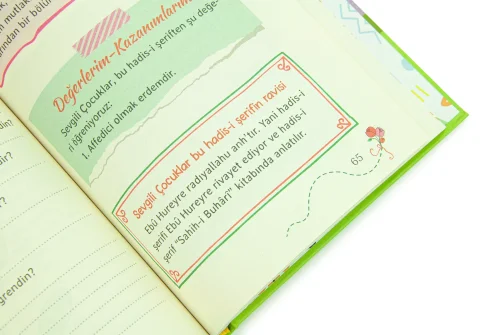 mutlak
ından bir bölü
Değerlerim-Kazanımlarım
Sevgili Çocuklar, bu hadis-i şeriften şu değe-
ri öğreniyoruz:
1. Affedici olmak erdemdir.
Sevgili Çocuklar bu hadis-i şerifin ravisi
Ebû Hureyre radıyallahu anh'tır. Yani hadis-i
şerifi Ebû Hureyre rivayet ediyor ve hadis-i
şerif "Sahih-i Buhârî" kitabında anlatılır.
65
dir?
ğrendin?